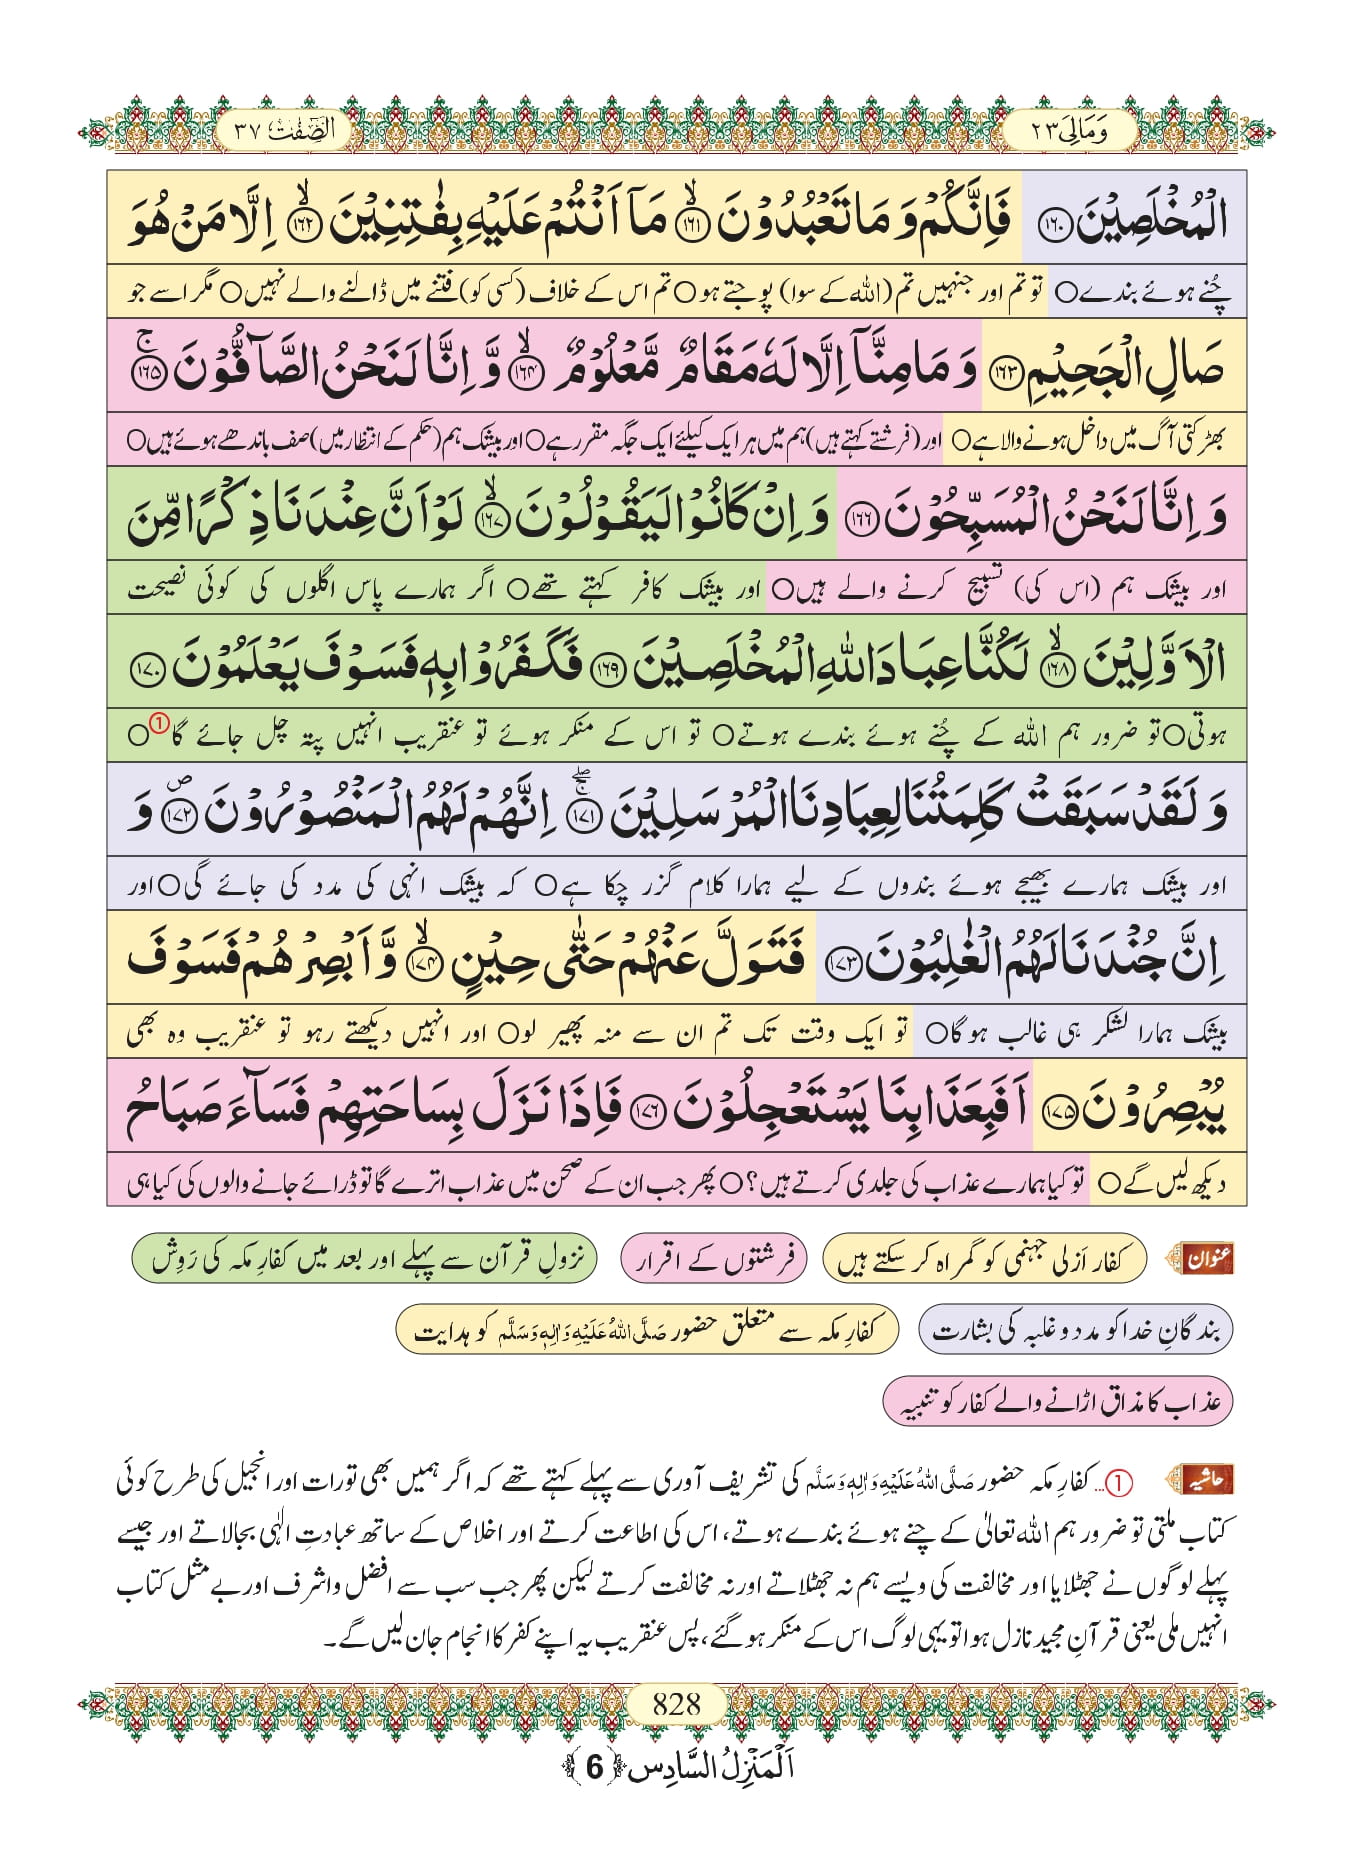 وَمَالِیَ ٢٣
الصّٰٓفّٰت ٣٧
الْمُخْلَصِیْنَ ﴿۱۶۰﴾ فَاِنَّكُمْ وَ مَا تَعْبُدُوْنَ ۙ﴿۱۶۱﴾ مَاۤ اَنْتُمْ عَلَیْهِ بِفٰتِنِیْنَ ۙ﴿۱۶۲﴾ اِلَّا مَنْ هُوَ
چُنے ہوئے بندے○ تو تم اور جنہیں تم (اللہ کے سوا) پوجتے ہو○ تم اس کے خلاف (کسی کو) فتنے میں ڈالنے والے نہیں○ مگر اسے جو
صَالِ الْجَحِیْمِ ﴿۱۶۳﴾ وَ مَا مِنَّاۤ اِلَّا لَهٗ مَقَامٌ مَّعْلُوْمٌ ۙ﴿۱۶۴﴾ وَّ اِنَّا لَنَحْنُ الصَّآفُّوْنَ ۚ﴿۱۶۵﴾
بھڑکتی آگ میں داخل ہونے والا ہے○ اور (فرشتے کہتے ہیں) ہم میں ہر ایک کیلئے ایک جگہ مقرر ہے○ اور بیشک ہم (حکم کے انتظار میں) صف باندھے ہوئے ہیں○
وَ اِنَّا لَنَحْنُ الْمُسَبِّحُوْنَ ﴿۱۶۶﴾ وَ اِنْ كَانُوْا لَیَقُوْلُوْنَ ۙ﴿۱۶۷﴾ لَوْ اَنَّ عِنْدَنَا ذِكْرًا مِّنَ
اور بیشک ہم (اس کی) تسبیح کرنے والے ہیں○ اور بیشک کافر کہتے تھے○ اگر ہمارے پاس اگلوں کی کوئی نصیحت
الْاَوَّلِیْنَ ۙ﴿۱۶۸﴾ لَكُنَّا عِبَادَ اللّٰهِ الْمُخْلَصِیْنَ ﴿۱۶۹﴾ فَكَفَرُوْا بِهٖ فَسَوْفَ یَعْلَمُوْنَ ﴿۱۷۰﴾
ہوتی○ تو ضرور ہم اللہ کے چُنے ہوئے بندے ہوتے○ تو اس کے منکر ہوئے تو عنقریب انہیں پتہ چل جائے گا①○
وَ لَقَدْ سَبَقَتْ كَلِمَتُنَا لِعِبَادِنَا الْمُرْسَلِیْنَ ۚۖ﴿۱۷۱﴾ اِنَّهُمْ لَهُمُ الْمَنْصُوْرُوْنَ ۪﴿۱۷۲﴾ وَ
اور بیشک ہمارے بھیجے ہوئے بندوں کے لیے ہمارا کلام گزر چکا ہے○ کہ بیشک انہی کی مدد کی جائے گی○ اور
اِنَّ جُنْدَنَا لَهُمُ الْغٰلِبُوْنَ ﴿۱۷۳﴾ فَتَوَلَّ عَنْهُمْ حَتّٰى حِیْنٍ ۙ﴿۱۷۴﴾ وَّ اَبْصِرْهُمْ فَسَوْفَ
بیشک ہمارا لشکر ہی غالب ہوگا○ تو ایک وقت تک تم ان سے منہ پھیر لو○ اور انہیں دیکھتے رہو تو عنقریب وہ بھی
یُبْصِرُوْنَ ﴿۱۷۵﴾ اَفَبِعَذَابِنَا یَسْتَعْجِلُوْنَ ﴿۱۷۶﴾ فَاِذَا نَزَلَ بِسَاحَتِهِمْ فَسَآءَ صَبَاحُ
دیکھ لیں گے○ تو کیا ہمارے عذاب کی جلدی کرتے ہیں؟○ پھر جب ان کے صحن میں عذاب اترے گا تو ڈرائے جانے والوں کی کیا ہی
عنوان کفار اَزلی جہنمی کو گمراہ کر سکتے ہیں فرشتوں کے اقرار نزولِ قرآن سے پہلے اور بعد میں کفارِ مکہ کی رَوِش
بندگانِ خدا کو مدد و غلبہ کی بشارت کفارِ مکہ سے متعلق حضور صَلَّی اللہُ عَلَیْهِ وَاٰلِهٖ وَسَلَّم کو ہدایت
عذاب کا مذاق اڑانے والے کفار کو تنبیہ
حاشیہ ①... کفارِ مکہ حضور صَلَّی اللہُ عَلَیْهِ وَاٰلِهٖ وَسَلَّم کی تشریف آوری سے پہلے کہتے تھے کہ اگر ہمیں بھی تورات اور انجیل کی طرح کوئی
کتاب ملتی تو ضرور ہم اللہ تعالیٰ کے چنے ہوئے بندے ہوتے، اس کی اطاعت کرتے اور اخلاص کے ساتھ عبادتِ الٰہی بجالاتے اور جیسے
پہلے لوگوں نے جھٹلایا اور مخالفت کی ویسے ہم نہ جھٹلاتے اور نہ مخالفت کرتے لیکن پھر جب سب سے افضل و اشرف اور بے مثل کتاب
انہیں ملی یعنی قرآنِ مجید نازل ہوا تو یہی لوگ اس کے منکر ہوگئے، پس عنقریب یہ اپنے کفر کا انجام جان لیں گے۔
828
اَلْمَنْزِلُ السَّادِس ﴿6﴾